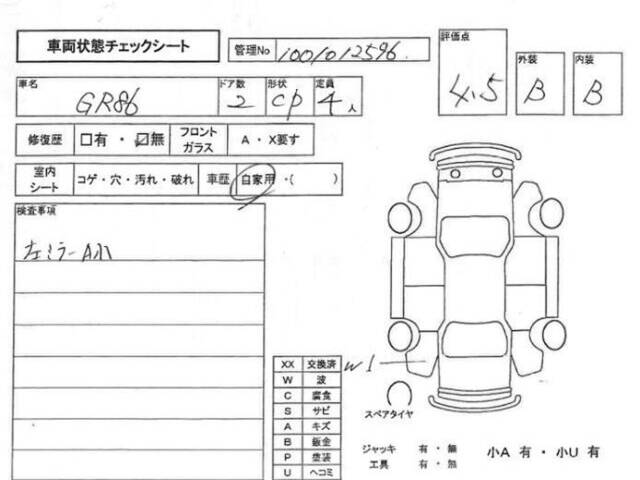 車両状態チェックシート
管理No 1001012596
評価点 4.5
外装 B
内装 B
車名 GR86
ドア数 2
形状 CP
定員 4人
修復歴 □有・☑無
フロントガラス A・X要す
室内シート コゲ・穴・汚れ・破れ
車歴 自家用・( )
検査事項
左ミラーA小
XX 交換済
W 波
C 腐食
S サビ
A キズ
B 鈑金
P 塗装
U ヘコミ
W1
スペアタイヤ
ジャッキ 有・無
工具 有・無
小A 有・小U 有